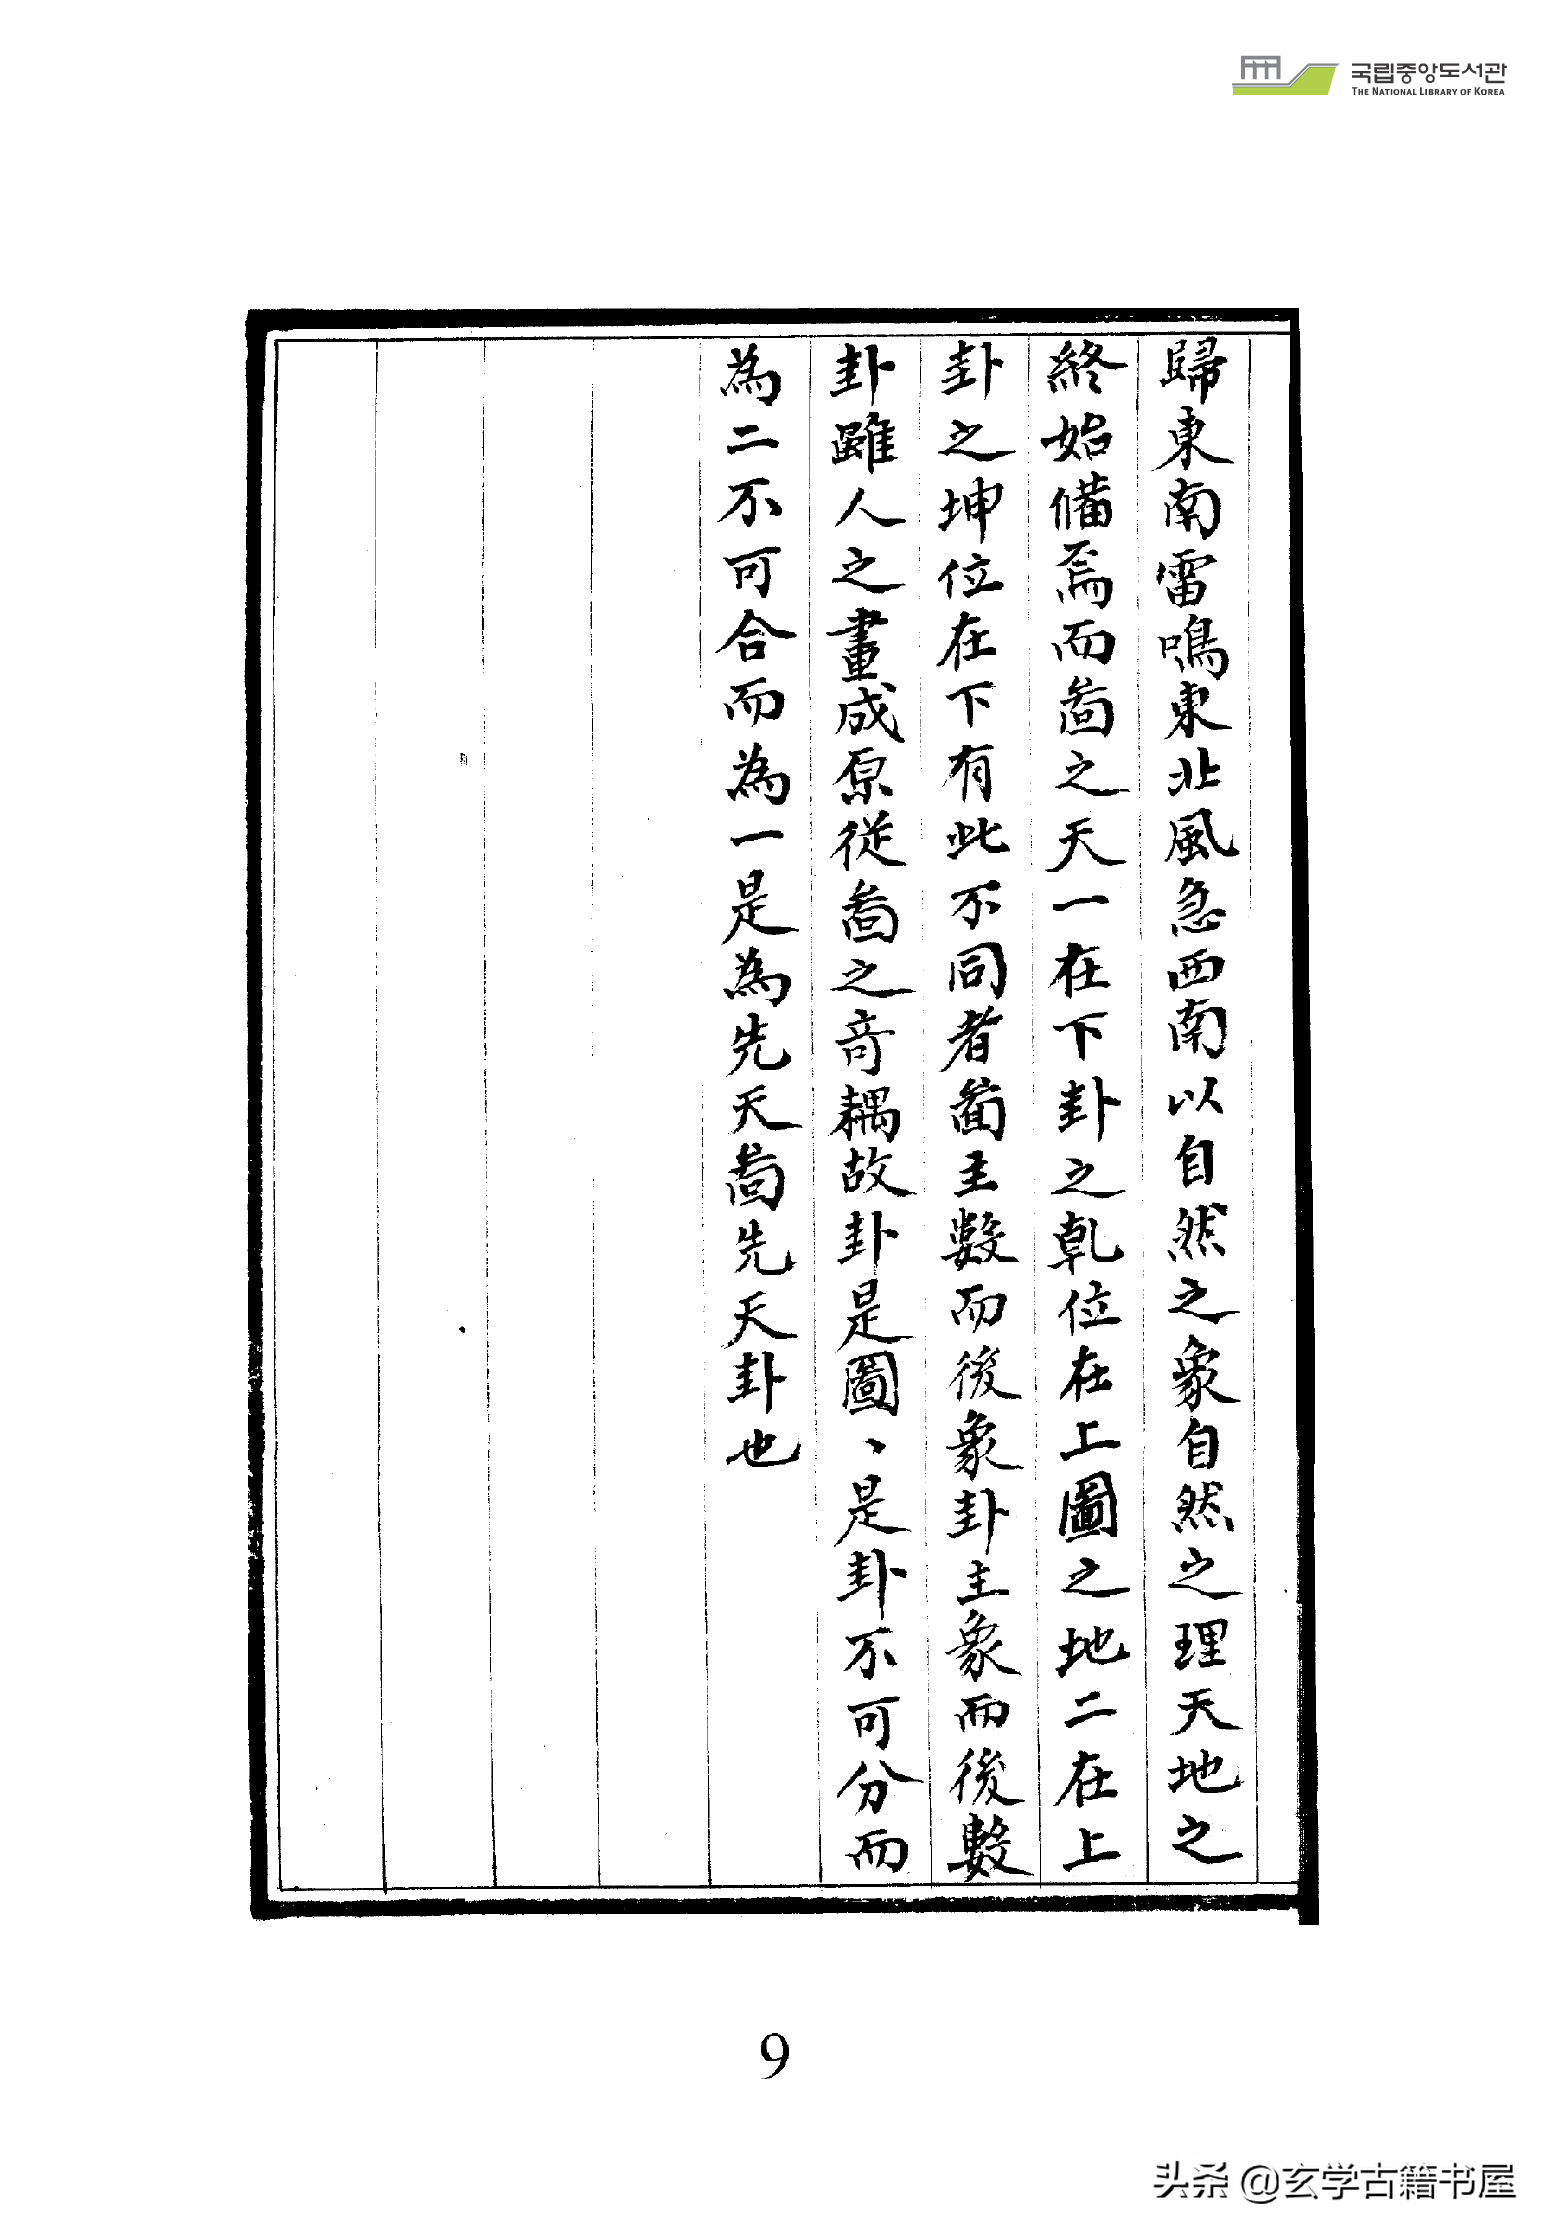 국립중앙도서관
THE NATIONAL LIBRARY OF KOREA
歸東南雷鳴東北風急西南以自然之象自然之理天地之
終始備焉而啚之天一在下卦之乹位在上圖之地二在上
卦之坤位在下有此不同者啚主數而後象卦主象而後數
卦雖人之畫成原從啚之竒耦故卦是圖、是卦不可分而
為二不可合而為一是為先天啚先天卦也
9
头条 @玄学古籍书屋